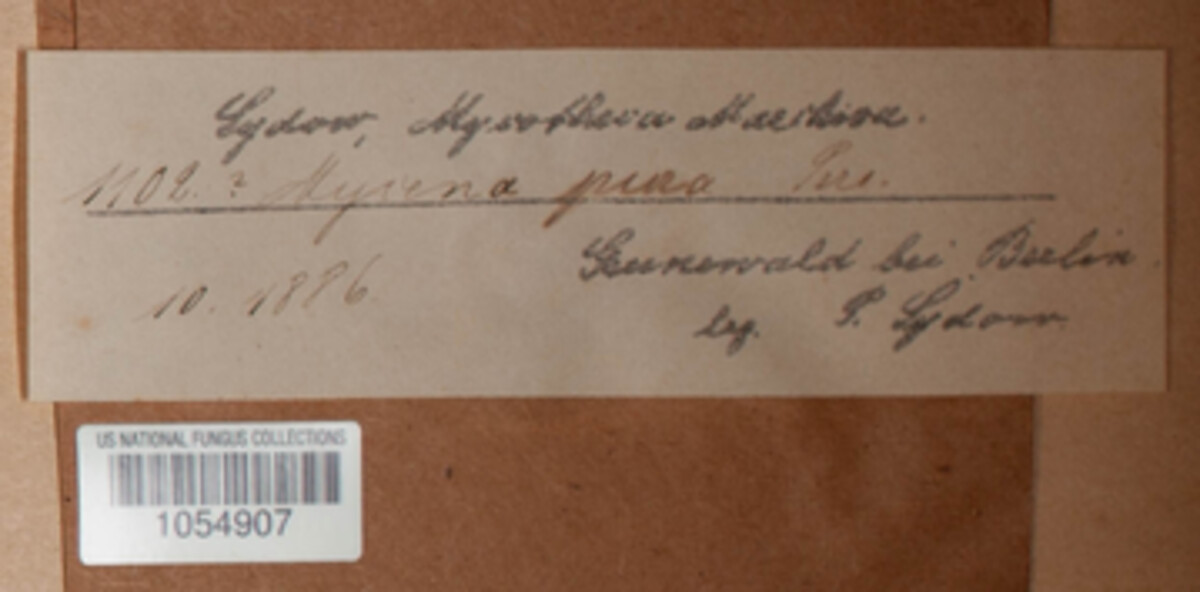 Sydow, Mycotheca Marchica.
1102. ? Mycena pura Pers.
Grunewald bei Berlin.
10. 1886
leg. P. Sydow.
US NATIONAL FUNGUS COLLECTIONS
1054907